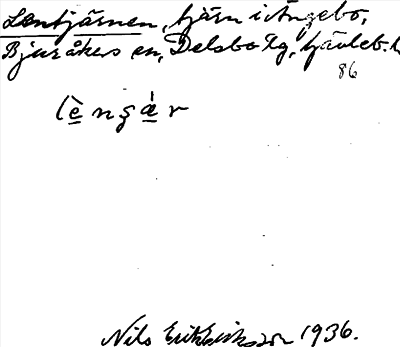 Lentjärnen, tjärn i Ängebo,
Bjuråkers sn, Delsbo tg, Gävleb. l
86
Nils Erik Eriksson 1936.